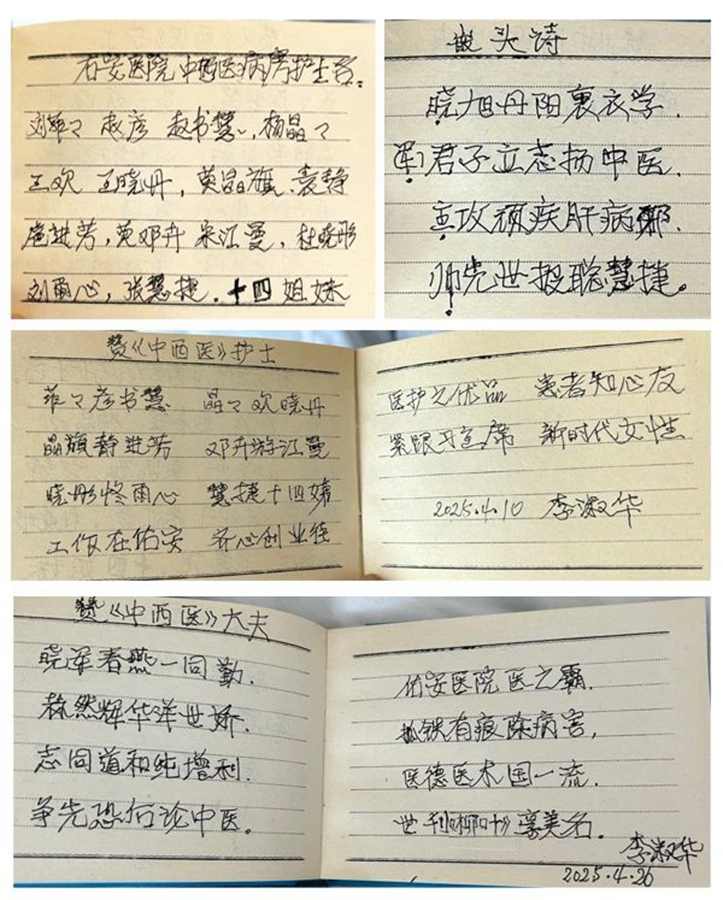 右安医院中西医病房护士台。
刘菲々 赵彦 赵书慧、杨晶々
王欢 王晓丹,莫晶旗、袁静
芳,邓卉 宋江曼,杜晓彤
刘雨心,张慧捷.十四姐妹
嵌头诗
晓旭丹阳裹衣学.
(军)君子立志扬中医.
主攻顽疾肝病邪.
帅先世授聪慧捷。
赞《中西医》护士
菲々彦书慧 晶々欢晓丹
晶旗静进芳 邓卉游江曼
晓彤修雨心 慧捷十四姨
工作在佑安 齐心创业绩
医护之优品 患者知心友
紧跟习主席 新时代女性
2025.4.10 李淑华
赞《中西医》大夫
晓军春燕一同勤.
赫然辉华洋世娇.
志同道和纯增利.
争先恐后论中医。
佑安医院医之霸.
抓铁有痕除病害,
医德医术国一流.
世刊《柳叶》享美名.
李淑华
2025.4.26